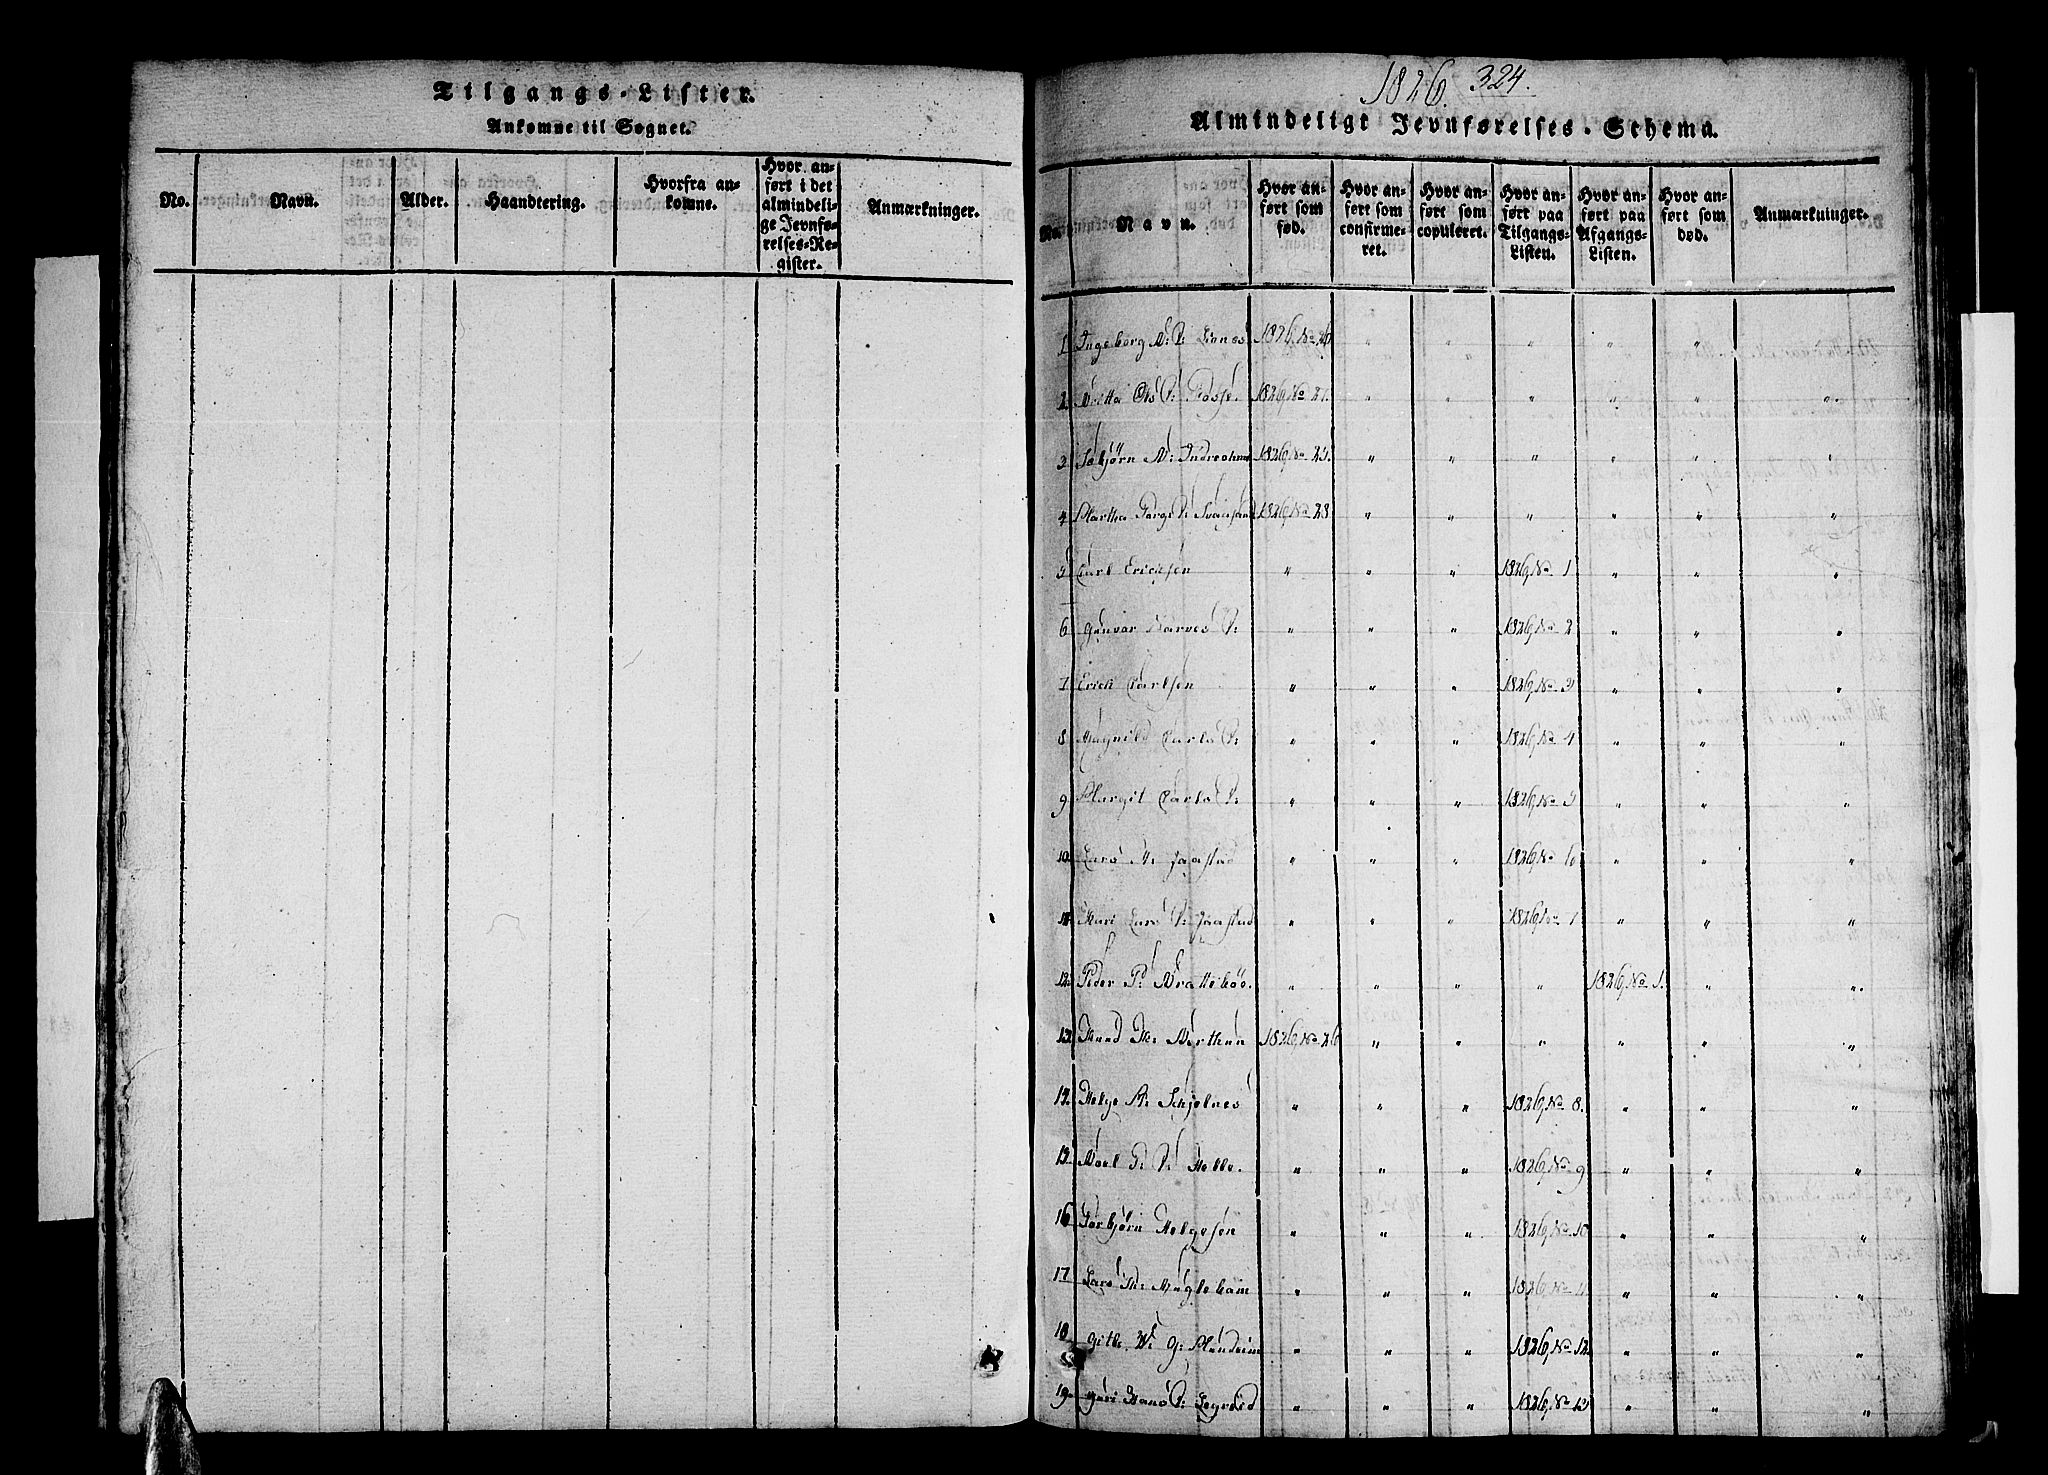 Tilgangs-Lister.
Ankomne til Sognet.
No.
Navn.
Alder.
Haandtering.
Hvorfra an-
komne.
Hvor an-
ført i det
almindeli-
ge Jevnfø-
relses-Re-
gister.
Anmærkninger.
1826. 324.
Almindeligt Jevnførelses-Schema.
No.
Navn.
Hvor an-
ført som
fød.
Hvor an-
ført som
confirme-
ret.
Hvor an-
ført som
copuleret.
Hvor an-
ført paa
Tilgangs-
Listen.
Hvor an-
ført paa
Afgangs-
Listen.
Hvor an-
ført som
død.
Anmærkninger.
1 Ingeborg 1826, No 26 " " " " " "
2 Britta 1826, No 27. " " " " " "
3 1826, No 25. " " " " " "
4 Martha 1826, No 28 " " " " " "
5 Carl Ericksen " " " 1826, No 1 " " "
6 Gunvor D: " " " 1826, No 2 " " "
7 Erick Carlsen " " " 1826, No 3 " " "
8 Magnild Carls D: " " " 1826, No 4 " " "
9 Margit Carls D: " " " 1826, No 5 " " "
10. Lars Jaastad " " " 1826, No 6 " " "
11. Mari Lars D: Jaastad " " " 1826, No 7 " " "
12. Peder P: Brattebøe. " " " " 1826, No 1. " "
13. Knud 1826, No 26 " " " " " "
14. Helge " " " 1826, No 8. " " "
15. " " " 1826, No 9 " " "
16 Torbjørn Helgesen " " " 1826, No 10 " " "
17 Lars " " " 1826, No 11 " " "
18 " " " 1826, No 12. " " "
19. Guri Hans D: " " " 1826, No 13 " " "